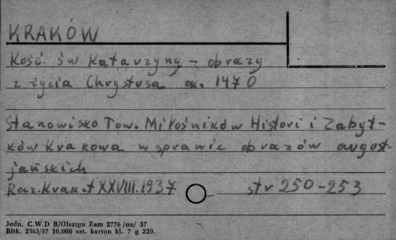 KRAKÓW
Kośc. św Katarzyny - obrazy
z życia Chrystusa ok. 1470
Stanowisko Tow. Miłośników Histori i Zabyt-
ków Krakowa w sprawie obrazów august-
jańskich
Rocz. Krak. t XXVIII. 1937 str 250-253
Jedn. C.W.D B/Olsztyn Zam 2776 /on/ 57
Bltk. 2563/57 10.000 szt. karton kl. 7 g 220.